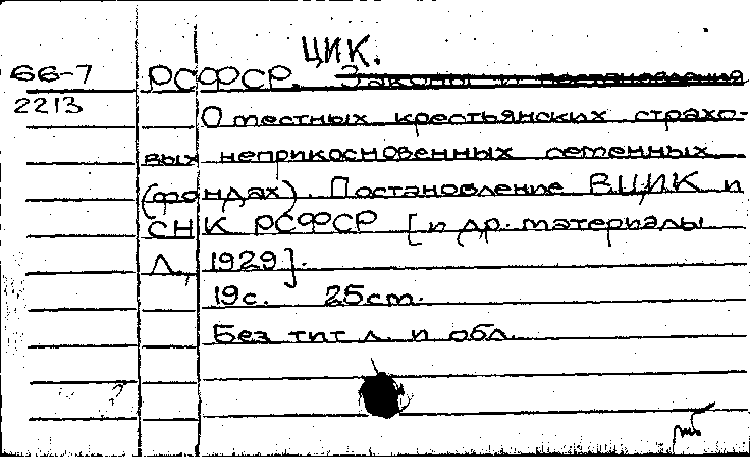 ЦИК.
66-7 РСФСР. Законы и постановления
2213 О местных крестьянских страхо-
вых неприкосновенных семенных
(фондах). Постановление ВЦИК и
СНК РСФСР [и др. материалы
Л., 1929].
19с. 25см.
Без тит л. и обл.